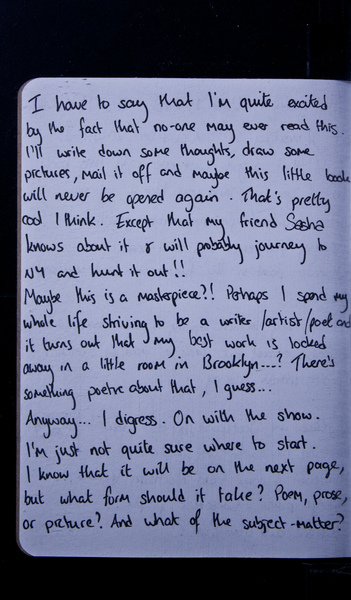 I have to say that I'm quite excited
by the fact that no-one may ever read this.
I'll write down some thoughts, draw some
pictures, mail it off and maybe this little book
will never be opened again. That's pretty
cool I think. Except that my friend Sasha
knows about it & will probably journey to
NY and hunt it out!!
Maybe this is a masterpiece?! Perhaps I spend my
whole life striving to be a writer/artist/poet and
it turns out that my best work is locked
away in a little room in Brooklyn....? There's
something poetic about that, I guess...
Anyway... I digress. On with the show.
I'm just not quite sure where to start.
I know that it will be on the next page,
but what form should it take? Poem, prose,
or picture? And what of the subject-matter?